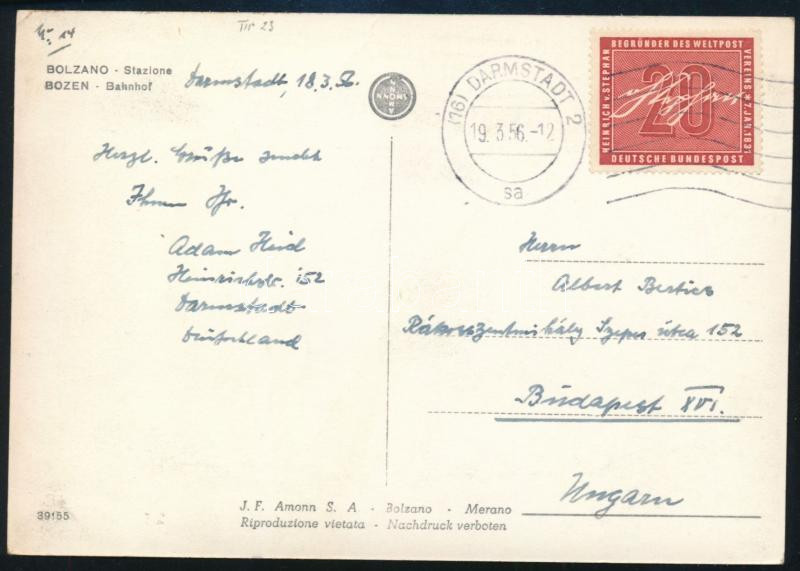 Nr 14
BOLZANO - Stazione
BOZEN - Bahnhof
Darmstadt, 18.3.56
Herzl. Grüße sendet
Ihnen Ihr.
Adam Heid
Heinrichstr. 152
Darmstadt
Deutschland
(16) DARMSTADT 2
19.3.56.-12
sa
HEINRICH v. STEPHAN
BEGRÜNDER DES WELTPOST
VEREINS * 7. JAN. 1831
20
DEUTSCHE BUNDESPOST
Herrn
Albert Bertics
Rákosszentmihály Szepes útca 152
Budapest XVI.
Ungarn
39155
J. F. Amonn S. A. - Bolzano - Merano
Riproduzione vietata - Nachdruck verboten